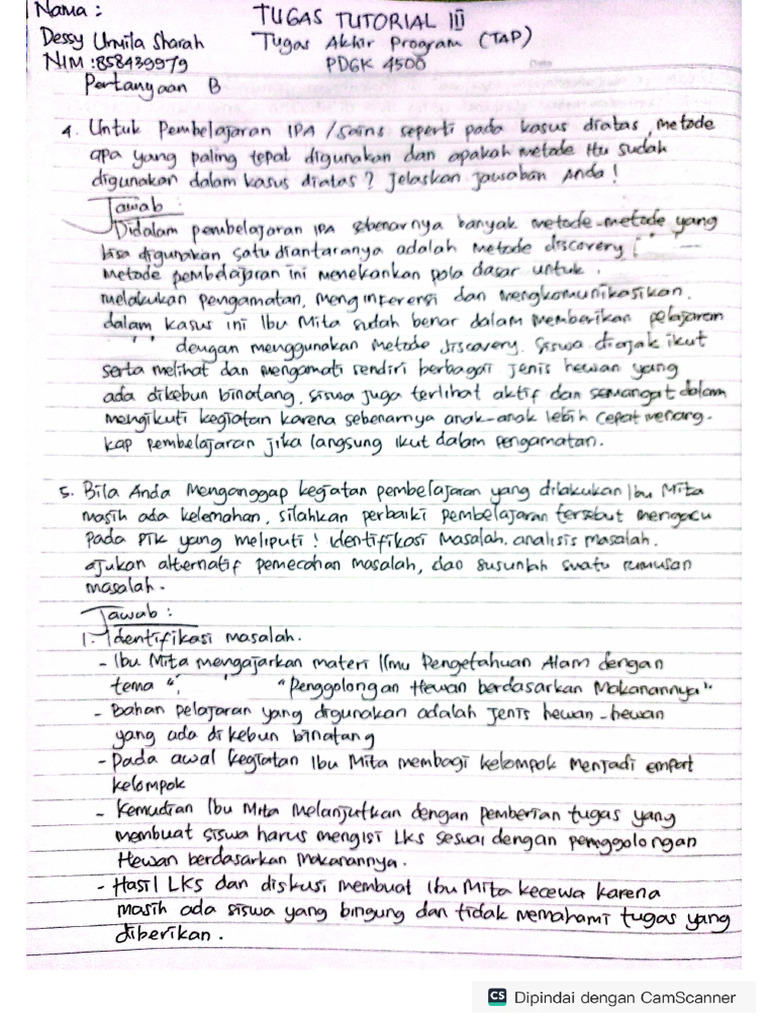 Nama :
TUGAS TUTORIAL III
Dessy Urmila Sharah
Tugas Akhir Program (TAP)
NIM : 858439979
PDGK 4500
Pertanyaan B
4. Untuk Pembelajaran IPA / sains seperti pada kasus diatas, metode
apa yang paling tepat digunakan dan apakah metode itu sudah
digunakan dalam kasus diatas ? Jelaskan jawaban Anda !
Jawab :
Didalam pembelajaran IPA sebenarnya banyak metode-metode yang
bisa digunakan satu diantaranya adalah metode discovery ;
metode pembelajaran ini menekankan pola dasar untuk.
melakukan pengamatan, menginferensi dan mengkomunikasikan.
dalam kasus ini Ibu Mita sudah benar dalam memberikan pelajaran
dengan menggunakan metode discovery. Siswa diajak ikut
serta melihat dan mengamati sendiri berbagai jenis hewan yang
ada dikebun binatang, siswa juga terlihat aktif dan semangat dalam
mengikuti kegiatan karena sebenarnya anak-anak lebih cepat menang-
kap pembelajaran jika langsung ikut dalam pengamatan.
5. Bila Anda Menganggap kegiatan pembelajaran yang dilakukan Ibu Mita
masih ada kelemahan, silahkan perbaiki pembelajaran tersebut mengacu
pada PTK yang meliputi ! identifikasi masalah. analisis masalah.
ajukan alternatif pemecahan masalah, dan susunlah suatu rumusan
masalah.
Jawab :
1. Identifikasi masalah.
- Ibu Mita mengajarkan materi Ilmu Pengetahuan Alam dengan
tema " "Penggolongan Hewan berdasarkan Makanannya"
- Bahan pelajaran yang digunakan adalah jenis hewan-hewan
yang ada di kebun binatang
- Pada awal kegiatan Ibu Mita membagi kelompok menjadi empat
kelompok
- Kemudian Ibu Mita melanjutkan dengan pemberian tugas yang
membuat siswa harus mengisi LKS sesuai dengan penggolongan
Hewan berdasarkan Makanannya.
- Hasil LKS dan diskusi membuat Ibu Mita kecewa karena
masih ada siswa yang bingung dan tidak memahami tugas yang
diberikan.
CS Dipindai dengan CamScanner